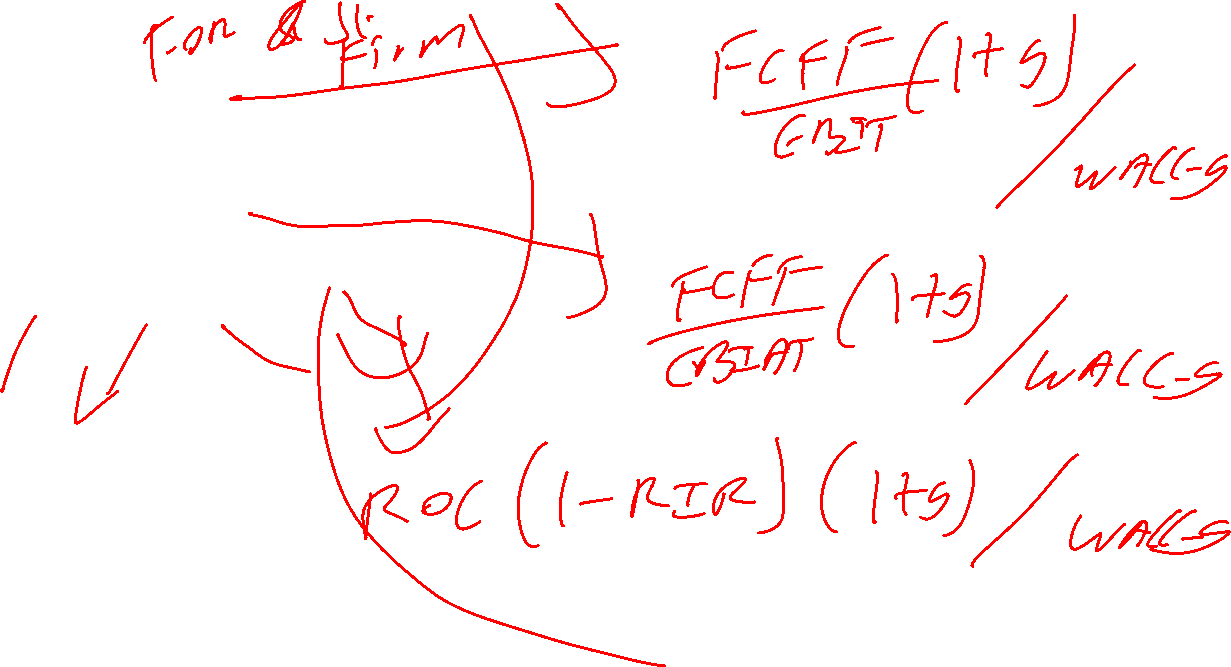 For & Firm
FCFF/EBIT (1+g) / WACC-g
FCFF/EBIAT (1+g) / WACC-g
ROC (1-RIR) (1+g) / WACC-g